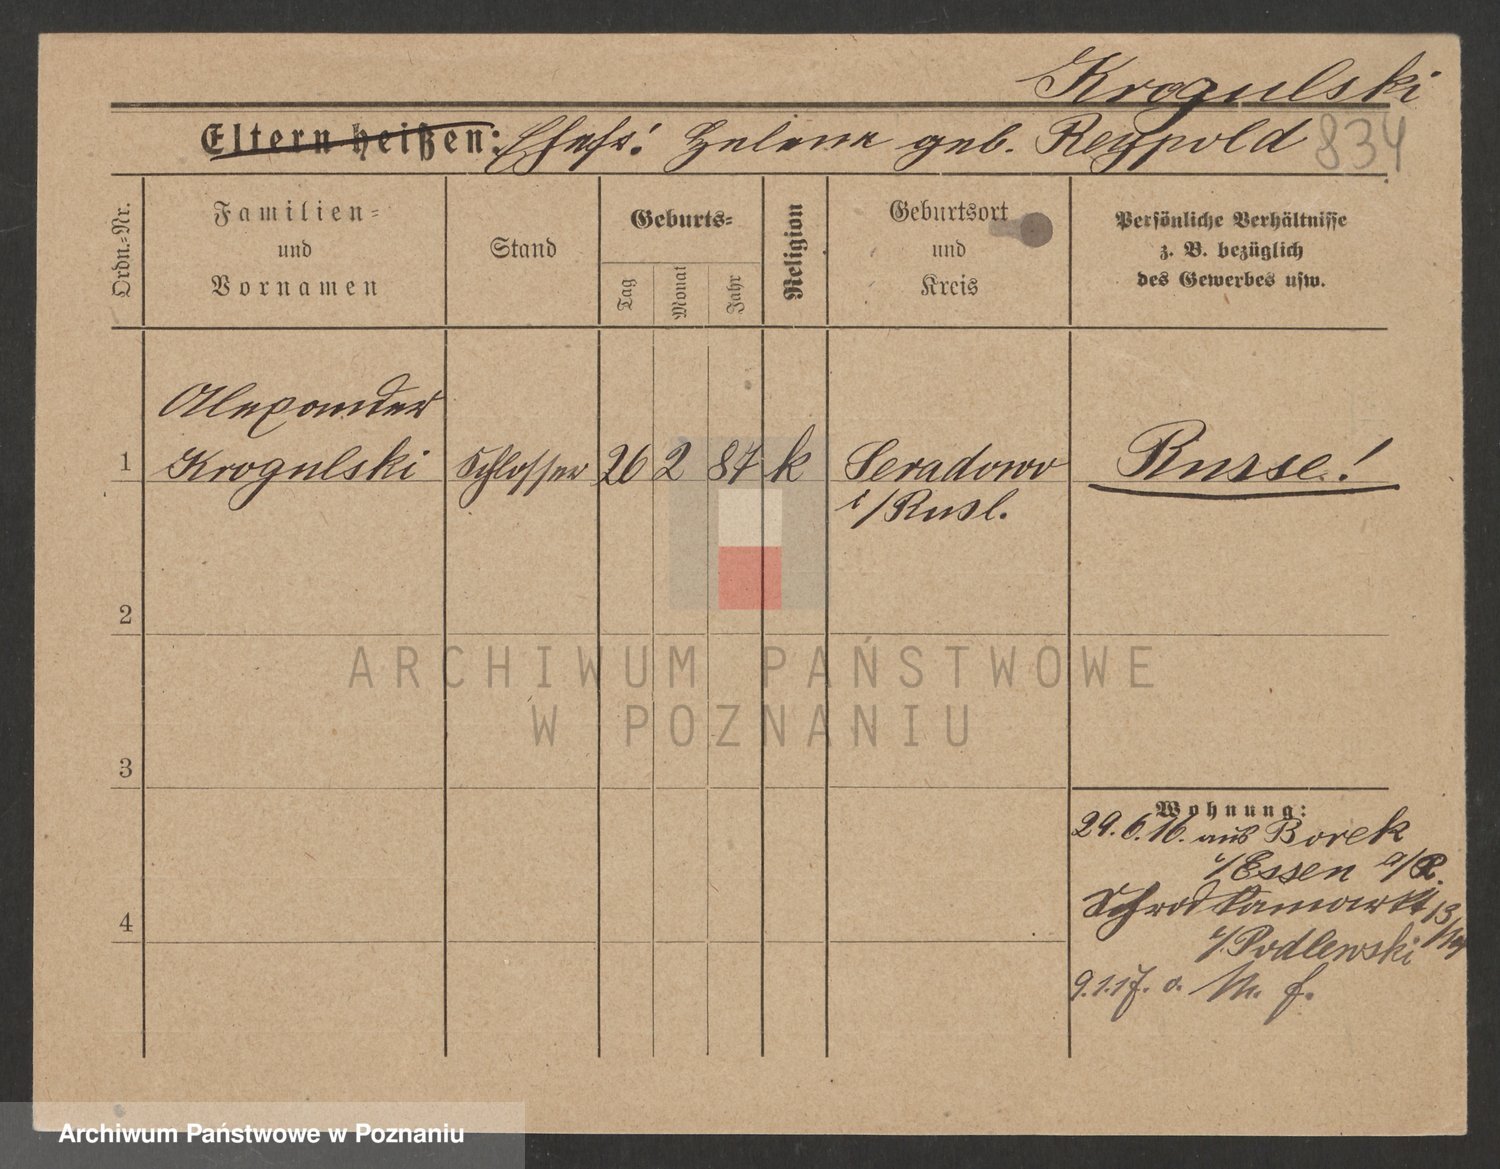 Krogulski
Eltern heißen: Ehefr: Helena geb. Reypold 834
Ordn.=Nr.
Familien=
und
Vornamen
Stand
Geburts=
Tag
Monat
Jahr
Religion
Geburtsort
und
Kreis
Persönliche Verhältnisse
z. B. bezüglich
des Gewerbes usw.
Alexander
1 Krogulski Schlosser 26 2 87 k Seradowo Russe!
i/Rusl.
2
ARCHIWUM PAŃSTWOWE
W POZNANIU
3
Wohnung:
29.6.16. aus Borek
Essen a/R.
4
Schrodkamarkt 13
Podlewski
9.1.17. o.
Archiwum Państwowe w Poznaniu